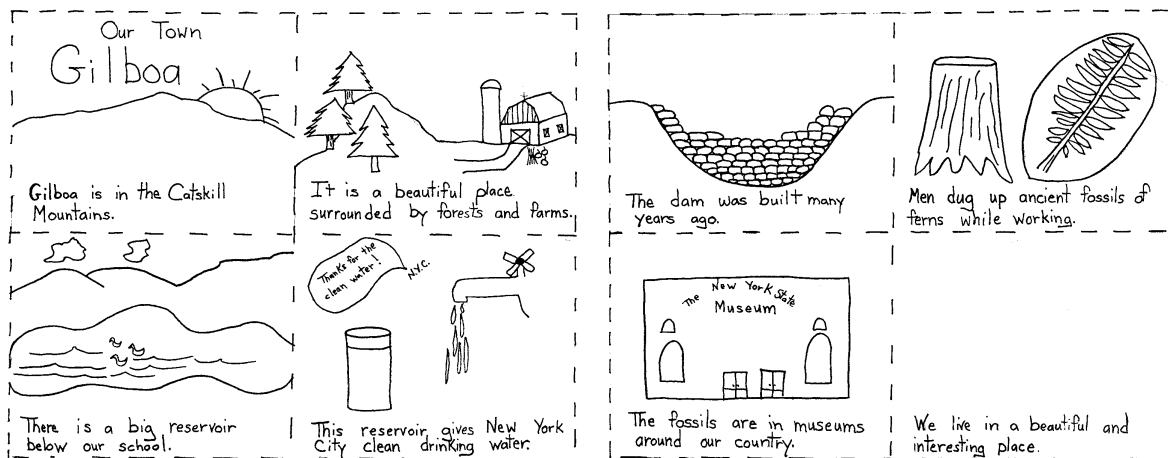 Our Town
Gilboa
Gilboa is in the Catskill
Mountains.
It is a beautiful place
surrounded by forests and farms.
There is a big reservoir
below our school.
Thanks for the
clean water!
N.Y.C.
This reservoir gives New York
City clean drinking water.
The dam was built many
years ago.
Men dug up ancient fossils of
ferns while working.
The New York State
Museum
The fossils are in museums
around our country.
We live in a beautiful and
interesting place.